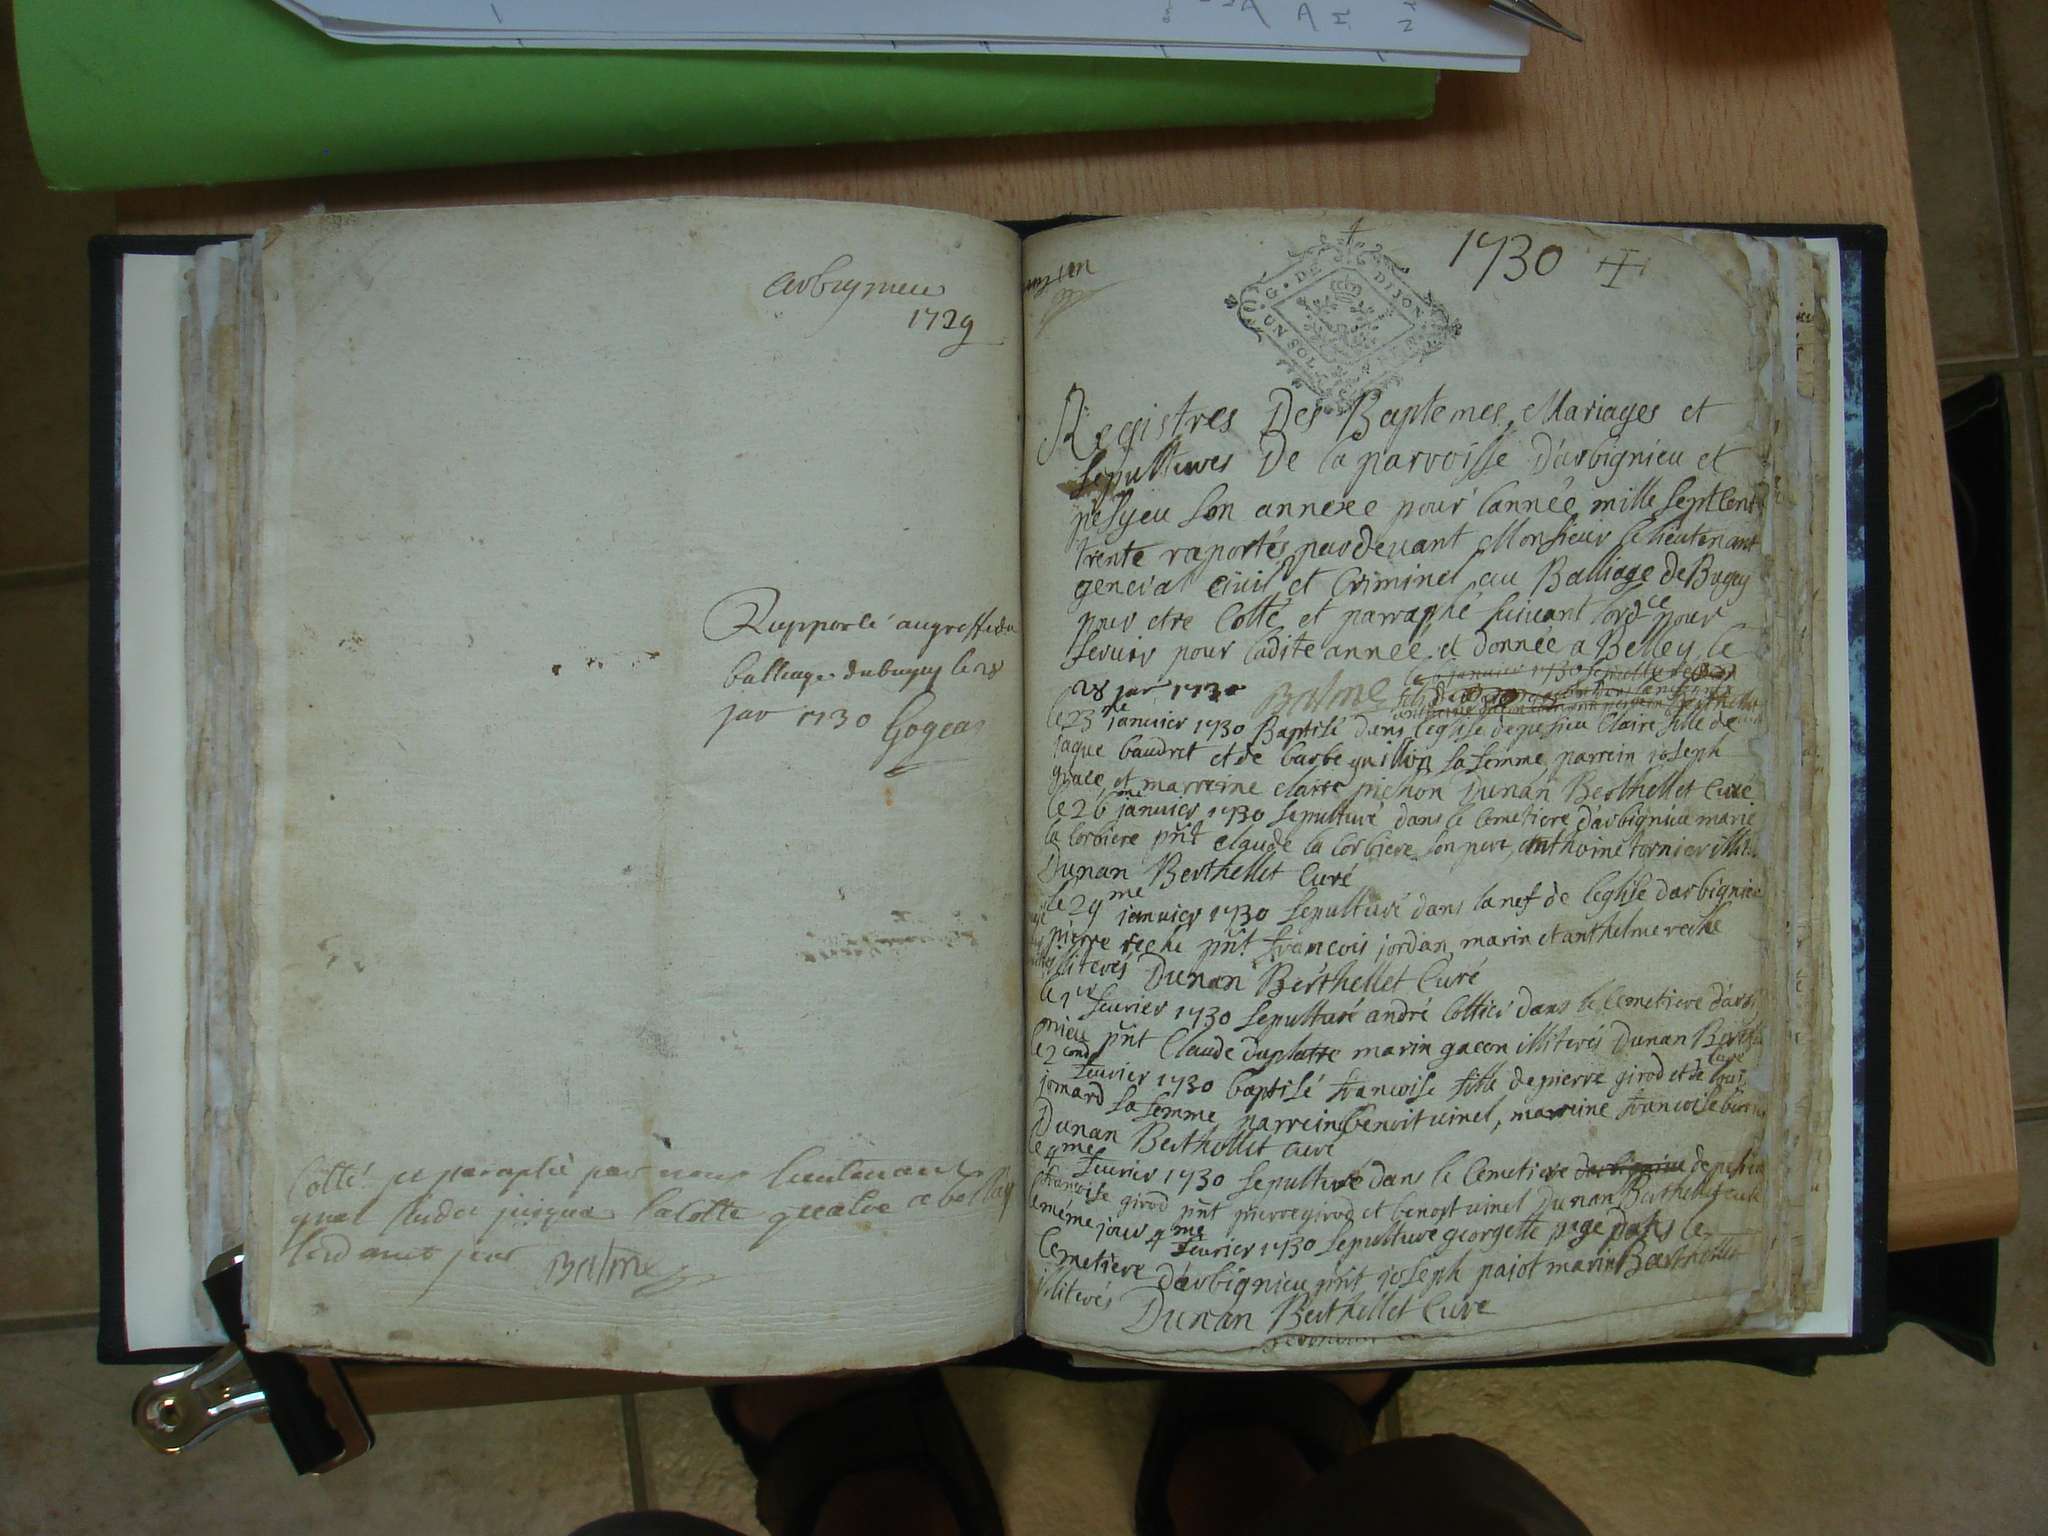 arbignieu
1729
Rapporté au greffe du
balliage du bugey le 28
jav 1730 Gogeat
Cotté et paraphé par nous lieutenant
gnal susdit jusqua la cotte quatre a belley
lesd an et jour Balme
1730
G. DE DIJON
UN SOL
Registres Des Baptemes, Mariages et
sepultures De la parroisse D'arbignieu et
pesyeu son annexe pour l'année mille sept Cent
trente raportés pardevant Monsieur le lieutenant
general civil et Criminel au Balliage de Bugey
pour etre Cotté et parraphé suivant lordce pour
servir pour ladite année et donnée a Belley le
28 jav 1730 Balme
le 23me janvier 1730 Baptisé dans l'eglise de pesieu Claire fille de
jaque baudret et de barbe guillion sa femme parrein joseph
grace et marreine claire pichon Dunan Berthellet Curé
le 26me janvier 1730 sepulturé dans le Cemetiere d'arbignieu marie
la Corbiere pñt claude la Corbiere son pere, anthoine tornier illit
Dunan Berthellet Curé
le 29me janvier 1730 sepulturé dans la nef de l'eglise d'arbignieu
pierre reche pñt francois jordan, marin et anthelme reche
illiterés Dunan Berthellet Curé
le 1er fevrier 1730 sepulturé andré Cottier dans le Cemetiere d'arbi
nieu pñt Claude duplatre marin gacon illiterés Dunan Berthellet
Curé
le 2cond fevrier 1730 baptisé francoise fille de pierre girod et de
jomard sa femme parrein benoit vinet, marreine francoise
Dunan Berthellet curé
le 4me fevrier 1730 sepulturé dans le Cemetiere darbignieu de pesieu
francoise girod pñt pierre girod et benoit vinet Dunan Berthellet curé
le méme jour 4me fevrier 1730 sepulturé georgette page dans le
Cemetiere d'arbignieu pñt joseph pajot marin Berthollet
illiterés Dunan Berthellet Curé